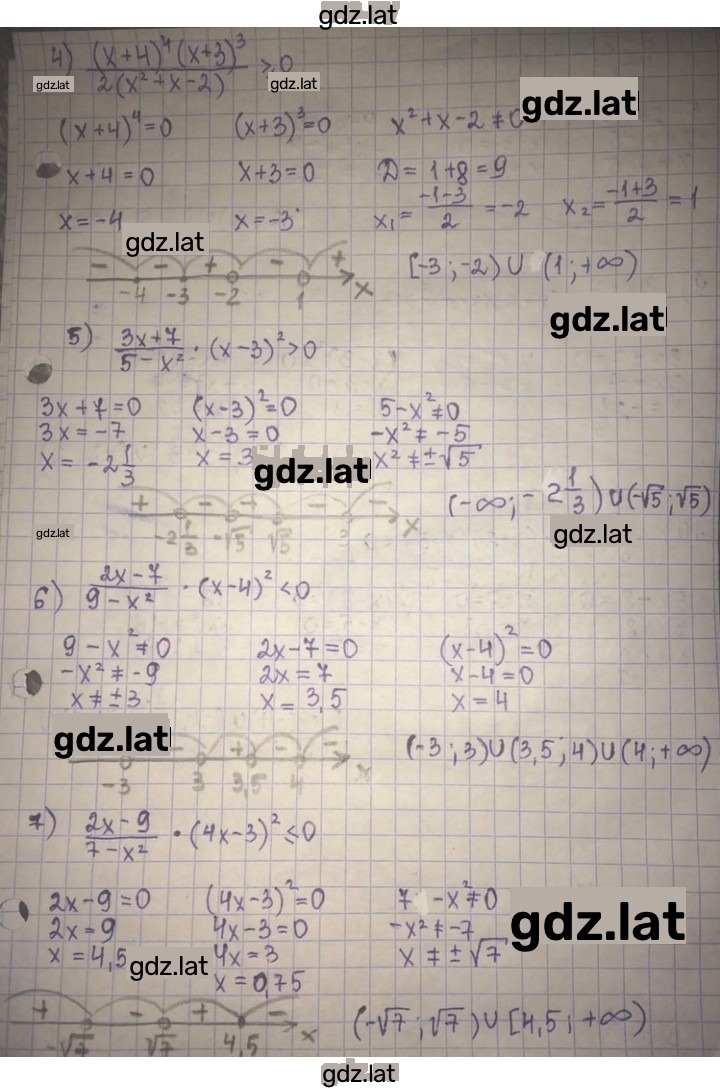 gdz.lat
4) (x+4)⁴(x+3)³ / 2(x²+x-2) ≥ 0
gdz.lat gdz.lat gdz.lat
(x+4)⁴=0 (x+3)³=0 x²+x-2≠0
x+4=0 x+3=0 D= 1+8=9
x=-4 x=-3 x₁= -1-3 / 2 = -2 x₂= -1+3 / 2 = 1
gdz.lat
- - + - +
-4 -3 -2 1 x
[-3;-2) ∪ (1;+∞)
gdz.lat
5) 3x+7 / 5-x² · (x-3)²>0
3x+7=0 (x-3)²=0 5-x²≠0
3x=-7 x-3=0 -x²≠-5
x=-2 1/3 x=3 x²≠±√5
gdz.lat
+ - + - -
-2 1/3 -√5 √5 3 x
(-∞;-2 1/3) ∪ (-√5;√5)
gdz.lat gdz.lat
6) 2x-7 / 9-x² · (x-4)² < 0
9-x²≠0 2x-7=0 (x-4)²=0
-x²≠-9 2x=7 x-4=0
x≠±3 x=3,5 x=4
gdz.lat
- + - -
-3 3 3,5 4 x
(-3;3)∪(3,5;4)∪(4;+∞)
7) 2x-9 / 7-x² · (4x-3)² ≤ 0
2x-9=0 (4x-3)²=0 7-x²≠0
2x=9 4x-3=0 -x²≠-7
x=4,5 4x=3 x≠±√7
x=0,75
gdz.lat gdz.lat
+ - + -
-√7 √7 4,5 x
(-√7;√7)∪[4,5;+∞)
gdz.lat